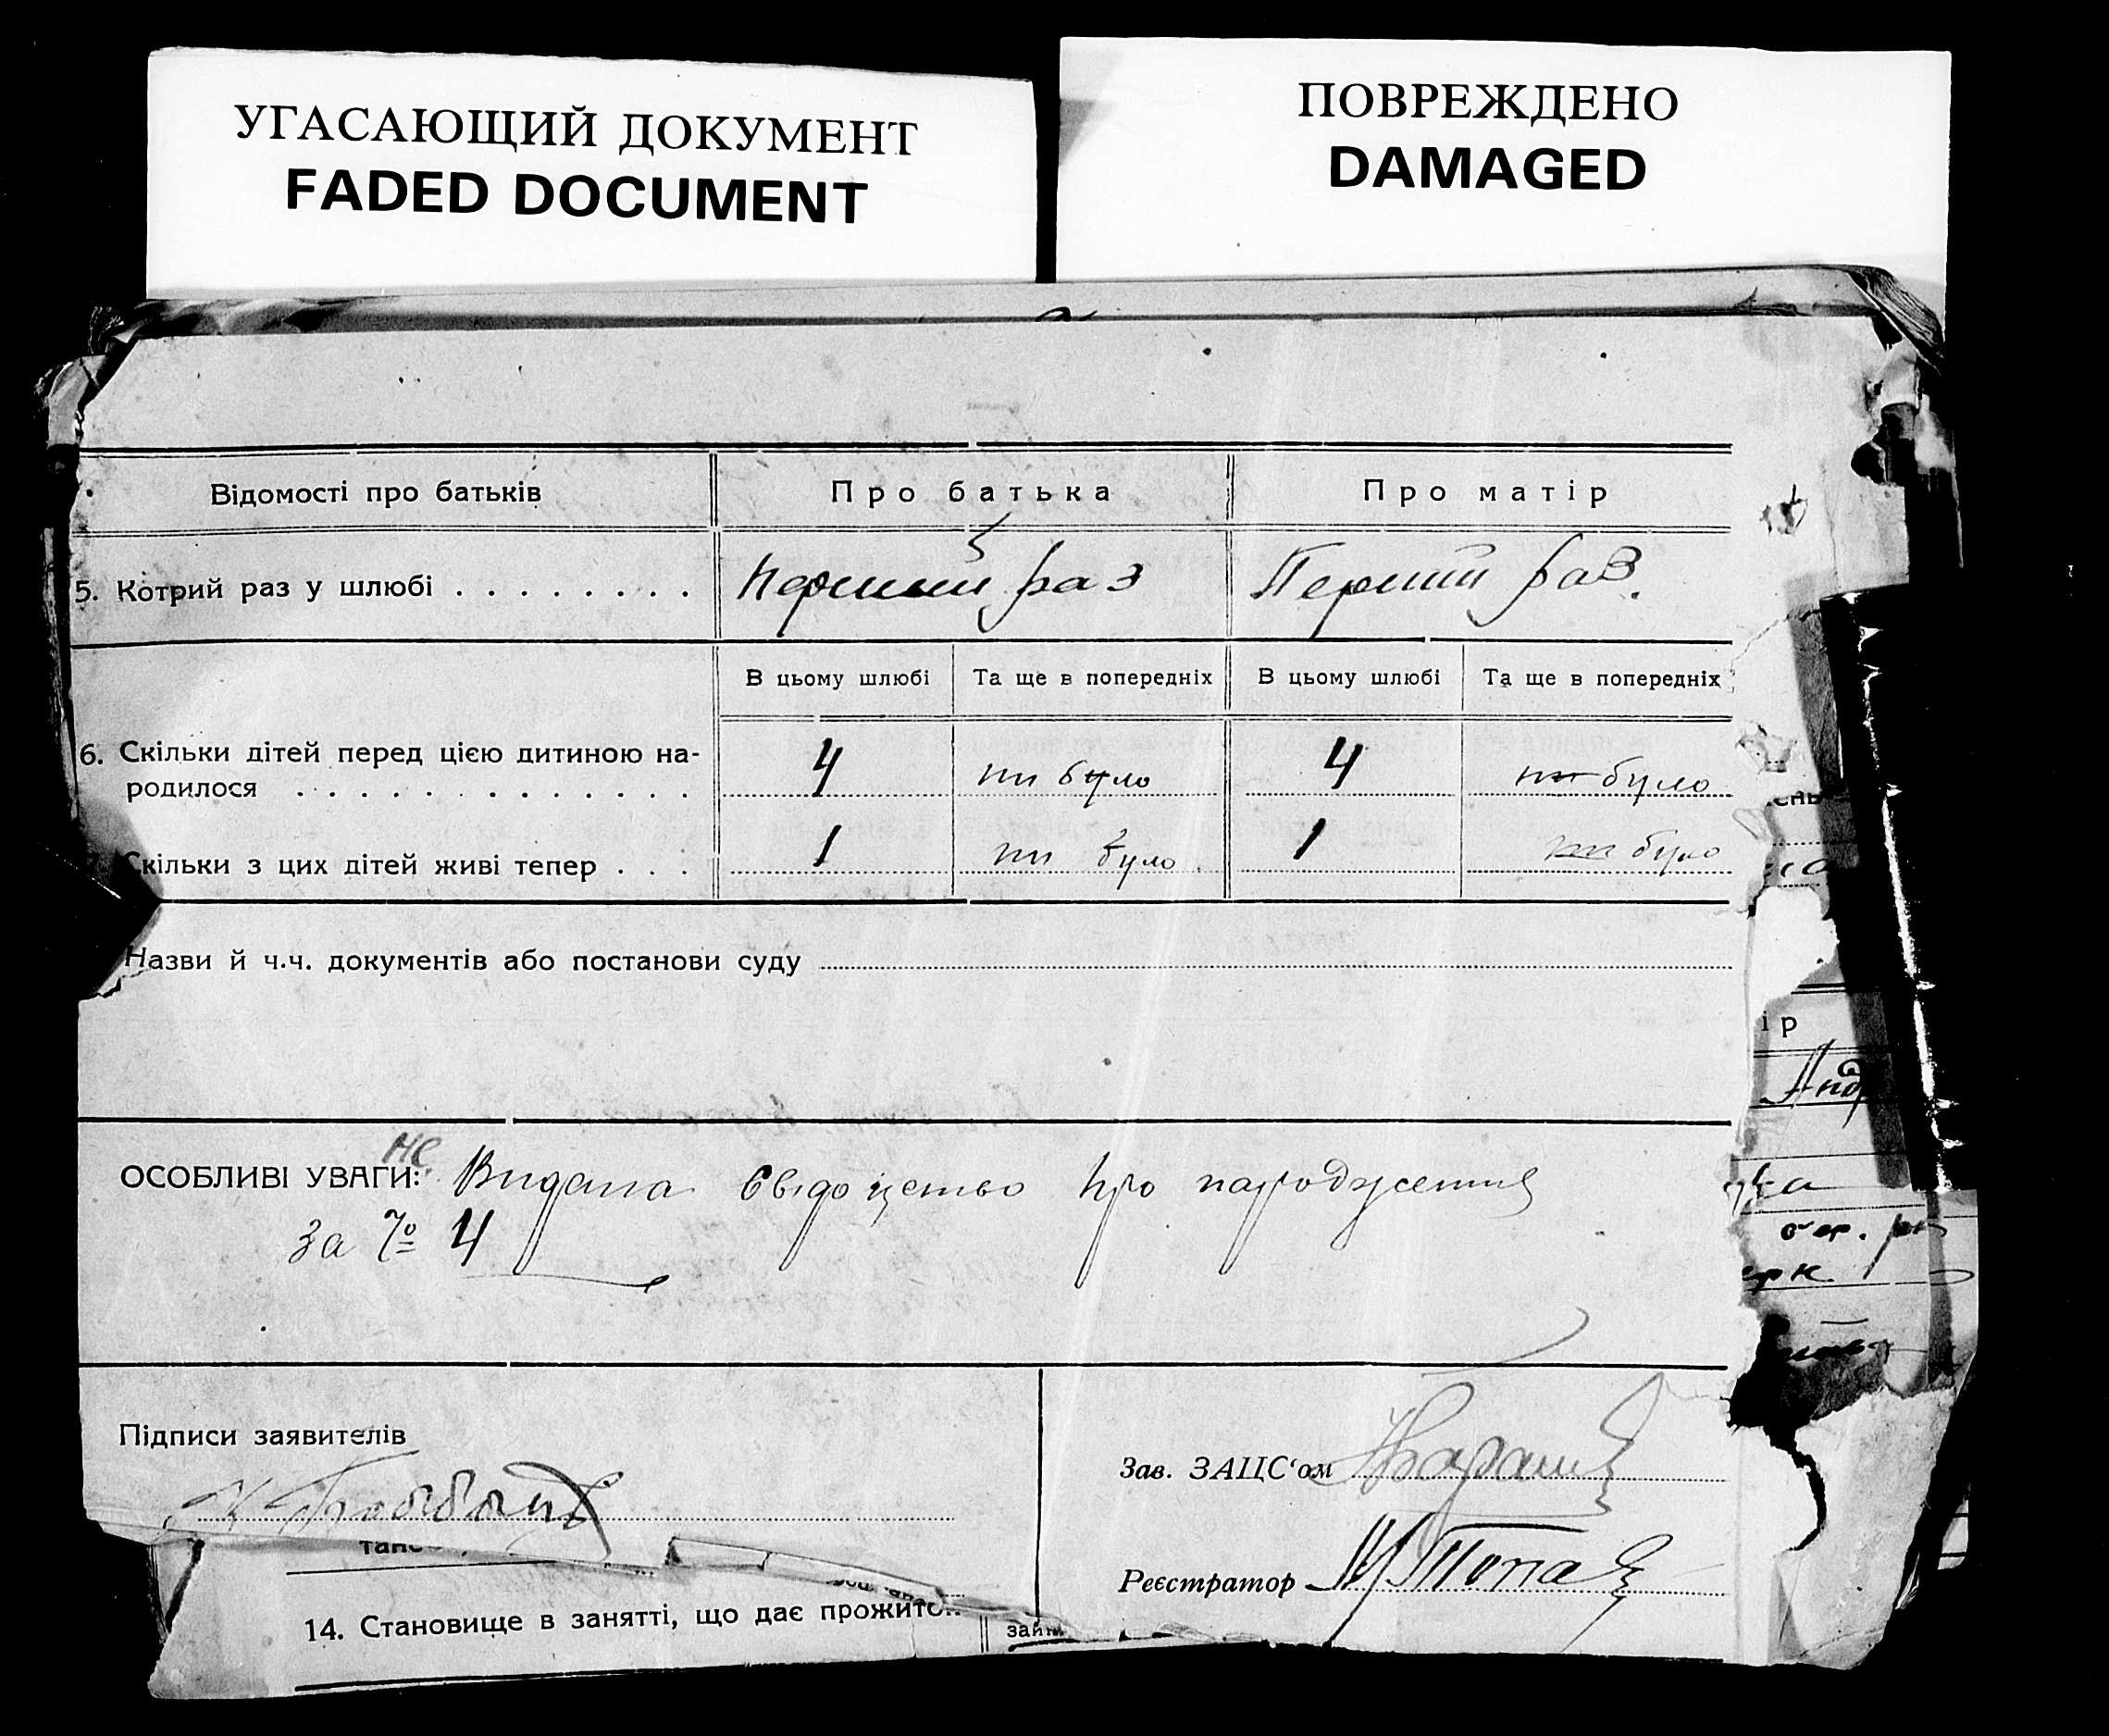 УГАСАЮЩИЙ ДОКУМЕНТ
FADED DOCUMENT
ПОВРЕЖДЕНО
DAMAGED
Відомості про батьків
Про батька
Про матір
5. Котрий раз у шлюбі
Перший раз
Перший раз.
В цьому шлюбі
Та ще в попередніх
В цьому шлюбі
Та ще в попередніх
6. Скільки дітей перед цією дитиною на-
родилося
4
ни було
4
ни було
Скільки з цих дітей живі тепер
1
ни було
1
ни було
Назви й ч.ч. документів або постанови суду
ОСОБЛИВІ УВАГИ: не Видана Свідоцтво про народження
за № 4
Підписи заявителів
Зав. ЗАЦС‘ом
Реєстратор
14. Становище в занятті, що дає прожиток
ір